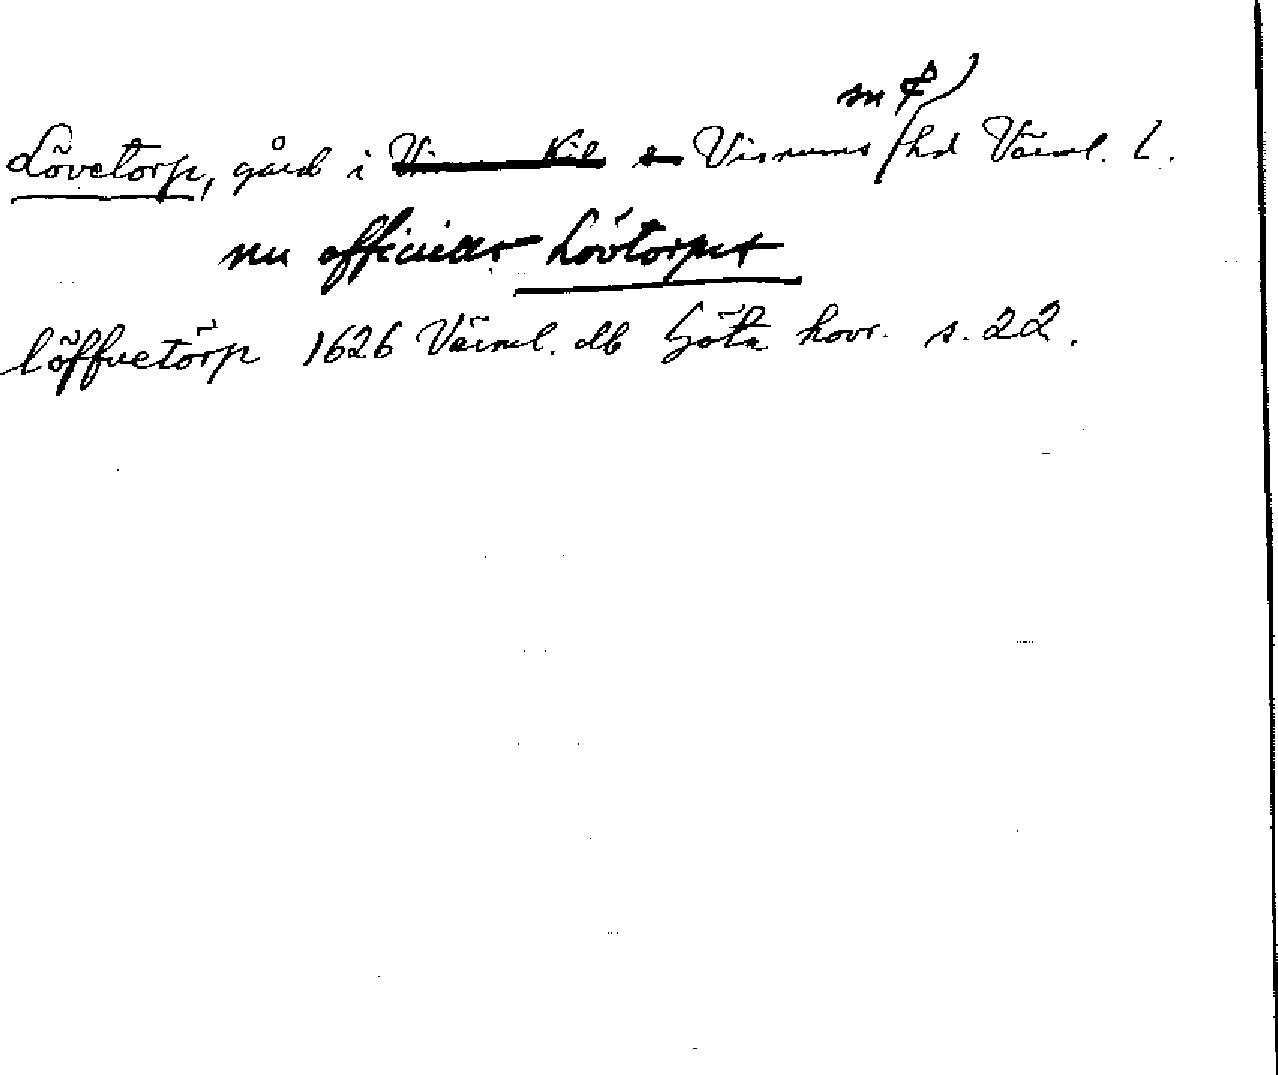 Lövetorp, gård i Visnums sn hd Värml. l.
nu officiellt Lövtorpet
löffvetörp 1626 Värml. db Göta hovr. s. 22.